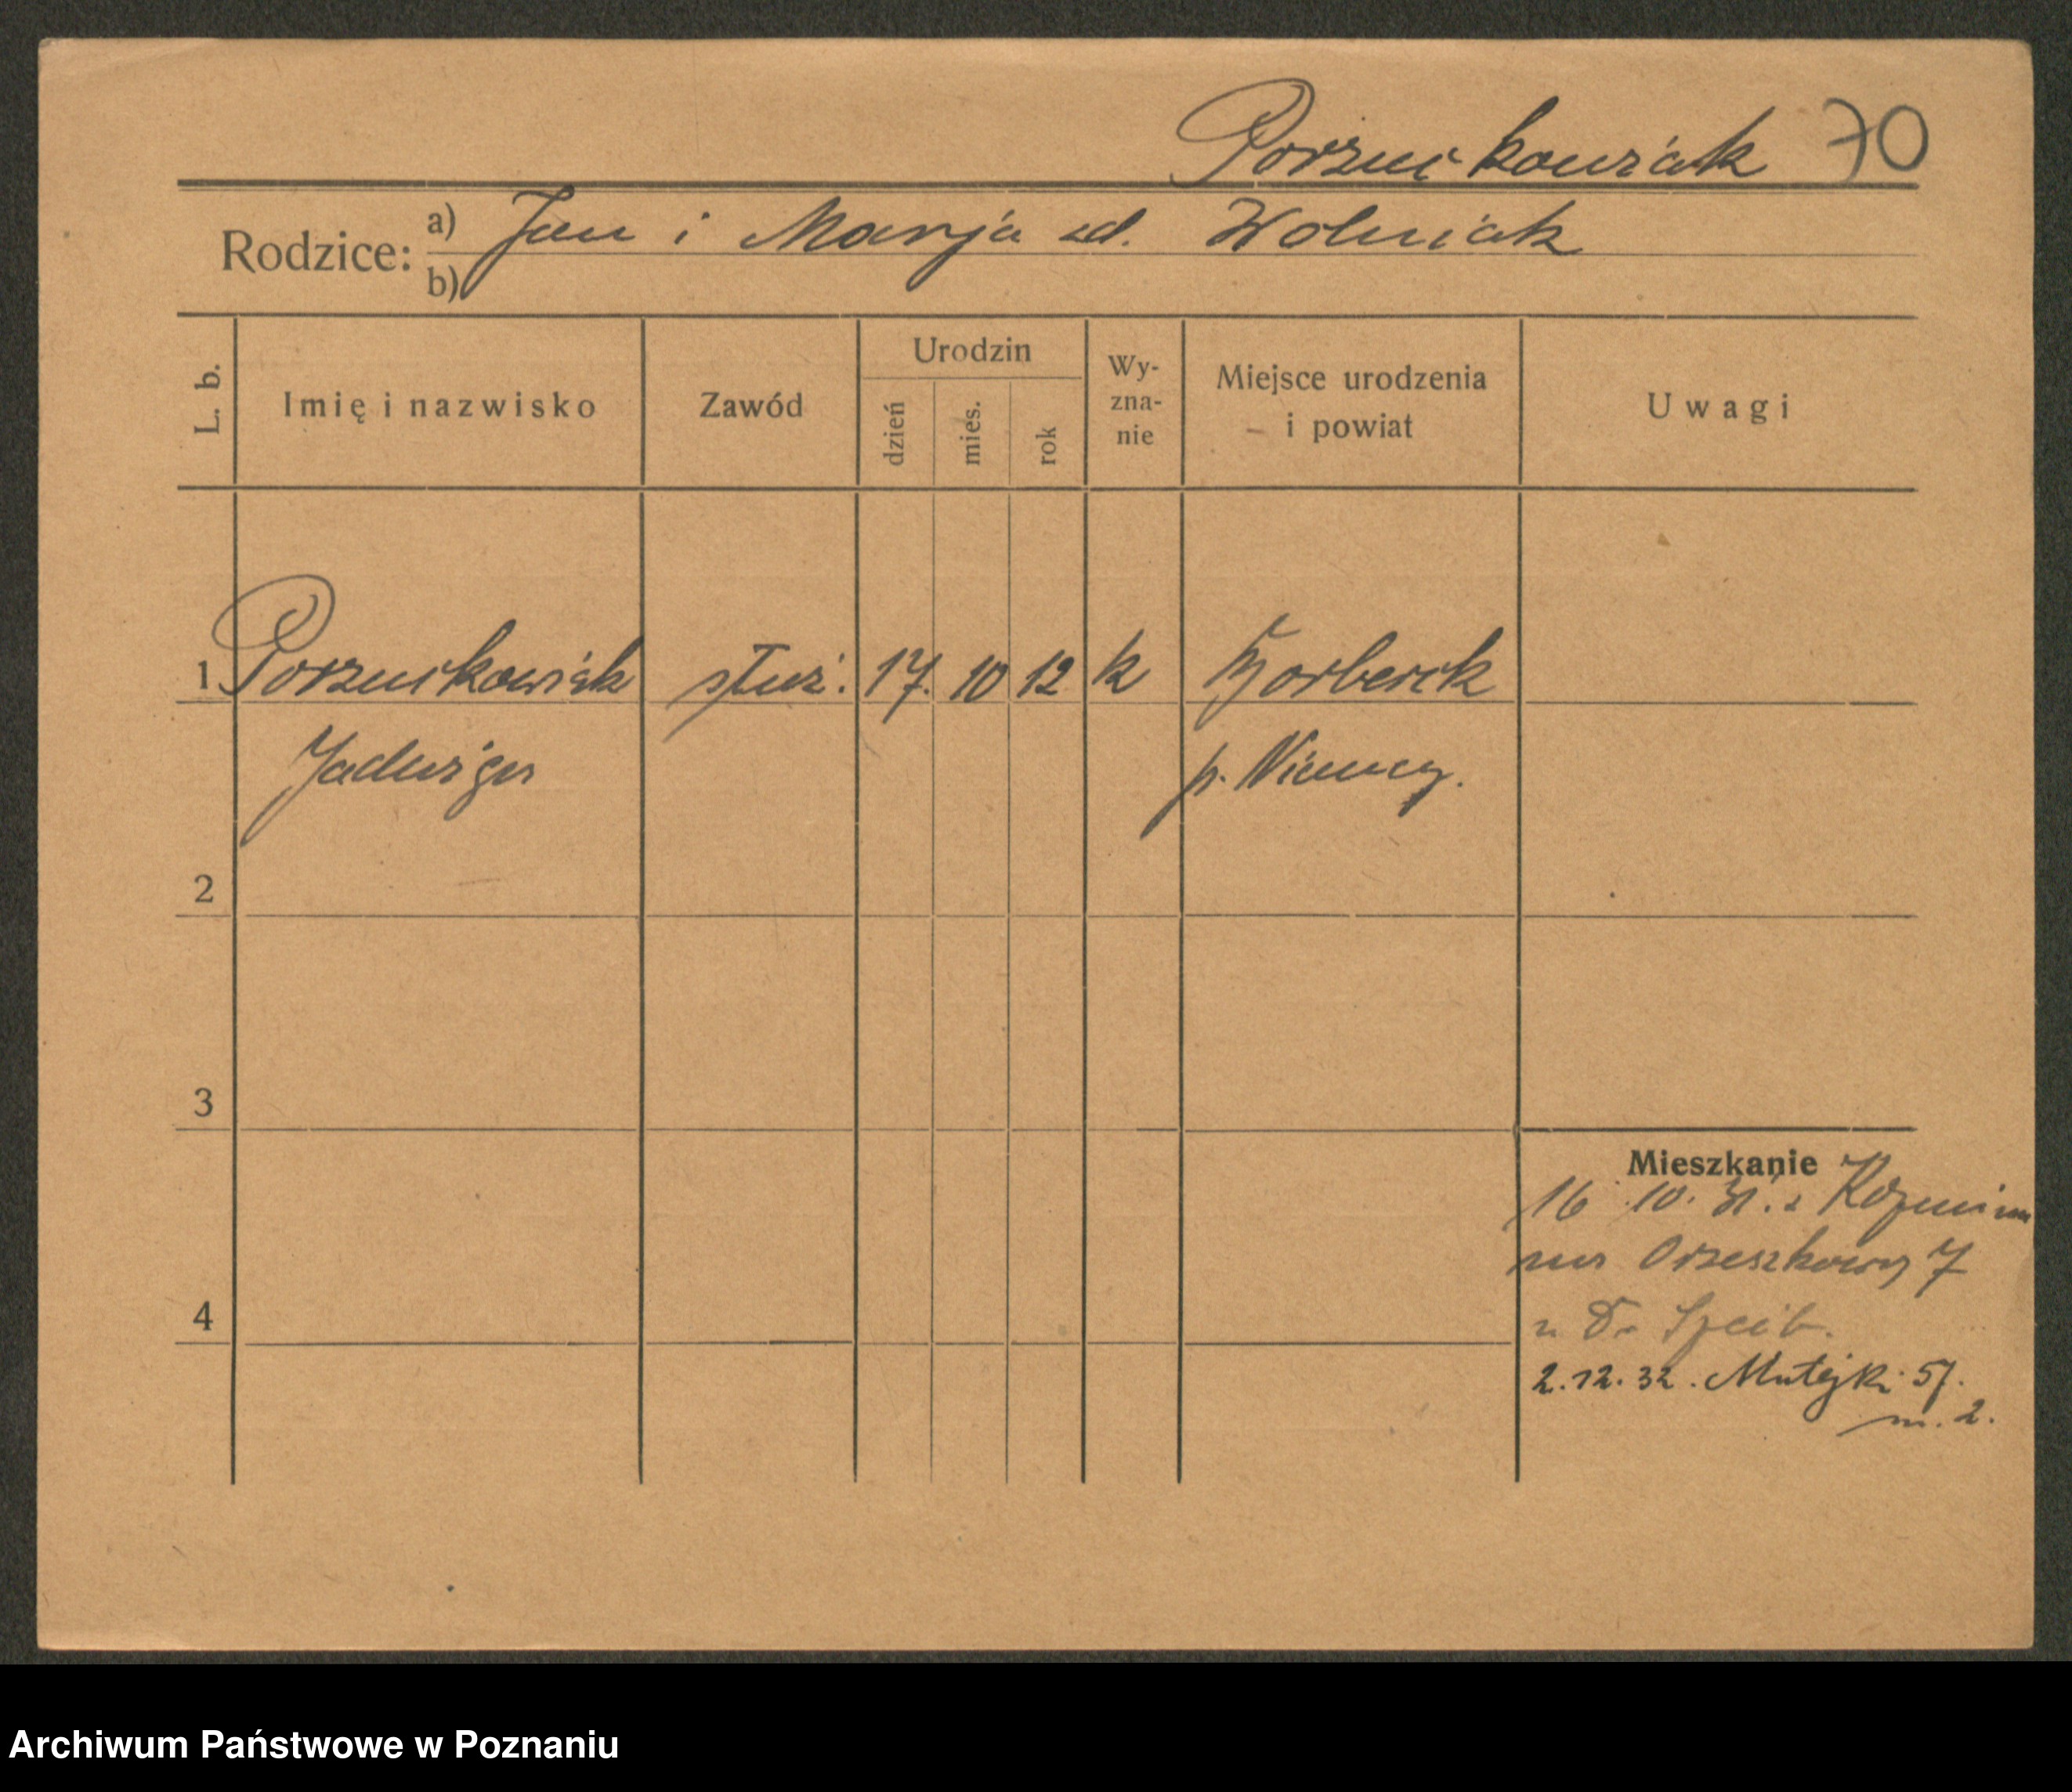 Porzuckowiak 70
Rodzice: a) Jan i Marja zd. Wolniak
b)
L. b. Imię i nazwisko Zawód Urodzin dzień mies. rok Wy-zna-nie Miejsce urodzenia i powiat Uwagi
1 Porzuckowiak służ. 17. 10 12 k Borbeck
Jadwiga p. Niemcy.
2
3
Mieszkanie
16 10. 31. z
na Orzeszkowej 7
4
u Dr
2.12.32. Matejki 57.
m. 2.
Archiwum Państwowe w Poznaniu